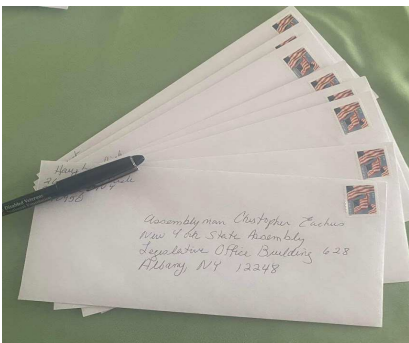 Assemblyman Christopher Eachus
New York State Assembly
Legislative Office Building 628
Albany, NY 12248